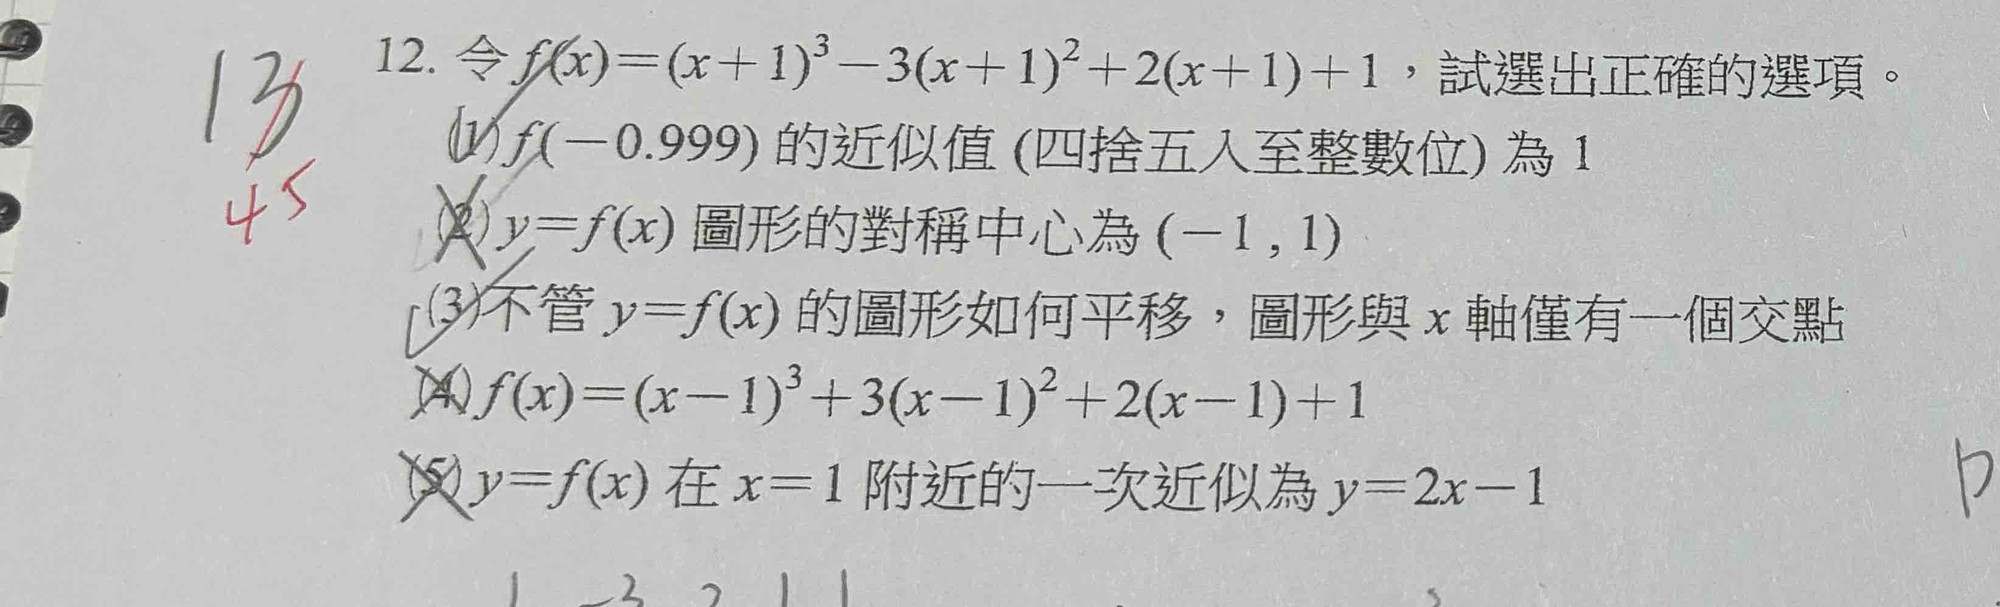 12. 令 f(x)=(x+1)³-3(x+1)²+2(x+1)+1，試選出正確的選項。
13
(1) f(-0.999) 的近似值 (四捨五入至整數位) 為 1
45
(2) y=f(x) 圖形的對稱中心為 (-1 , 1)
(3) 不管 y=f(x) 的圖形如何平移，圖形與 x 軸僅有一個交點
(4) f(x)=(x-1)³+3(x-1)²+2(x-1)+1
(5) y=f(x) 在 x=1 附近的一次近似為 y=2x-1